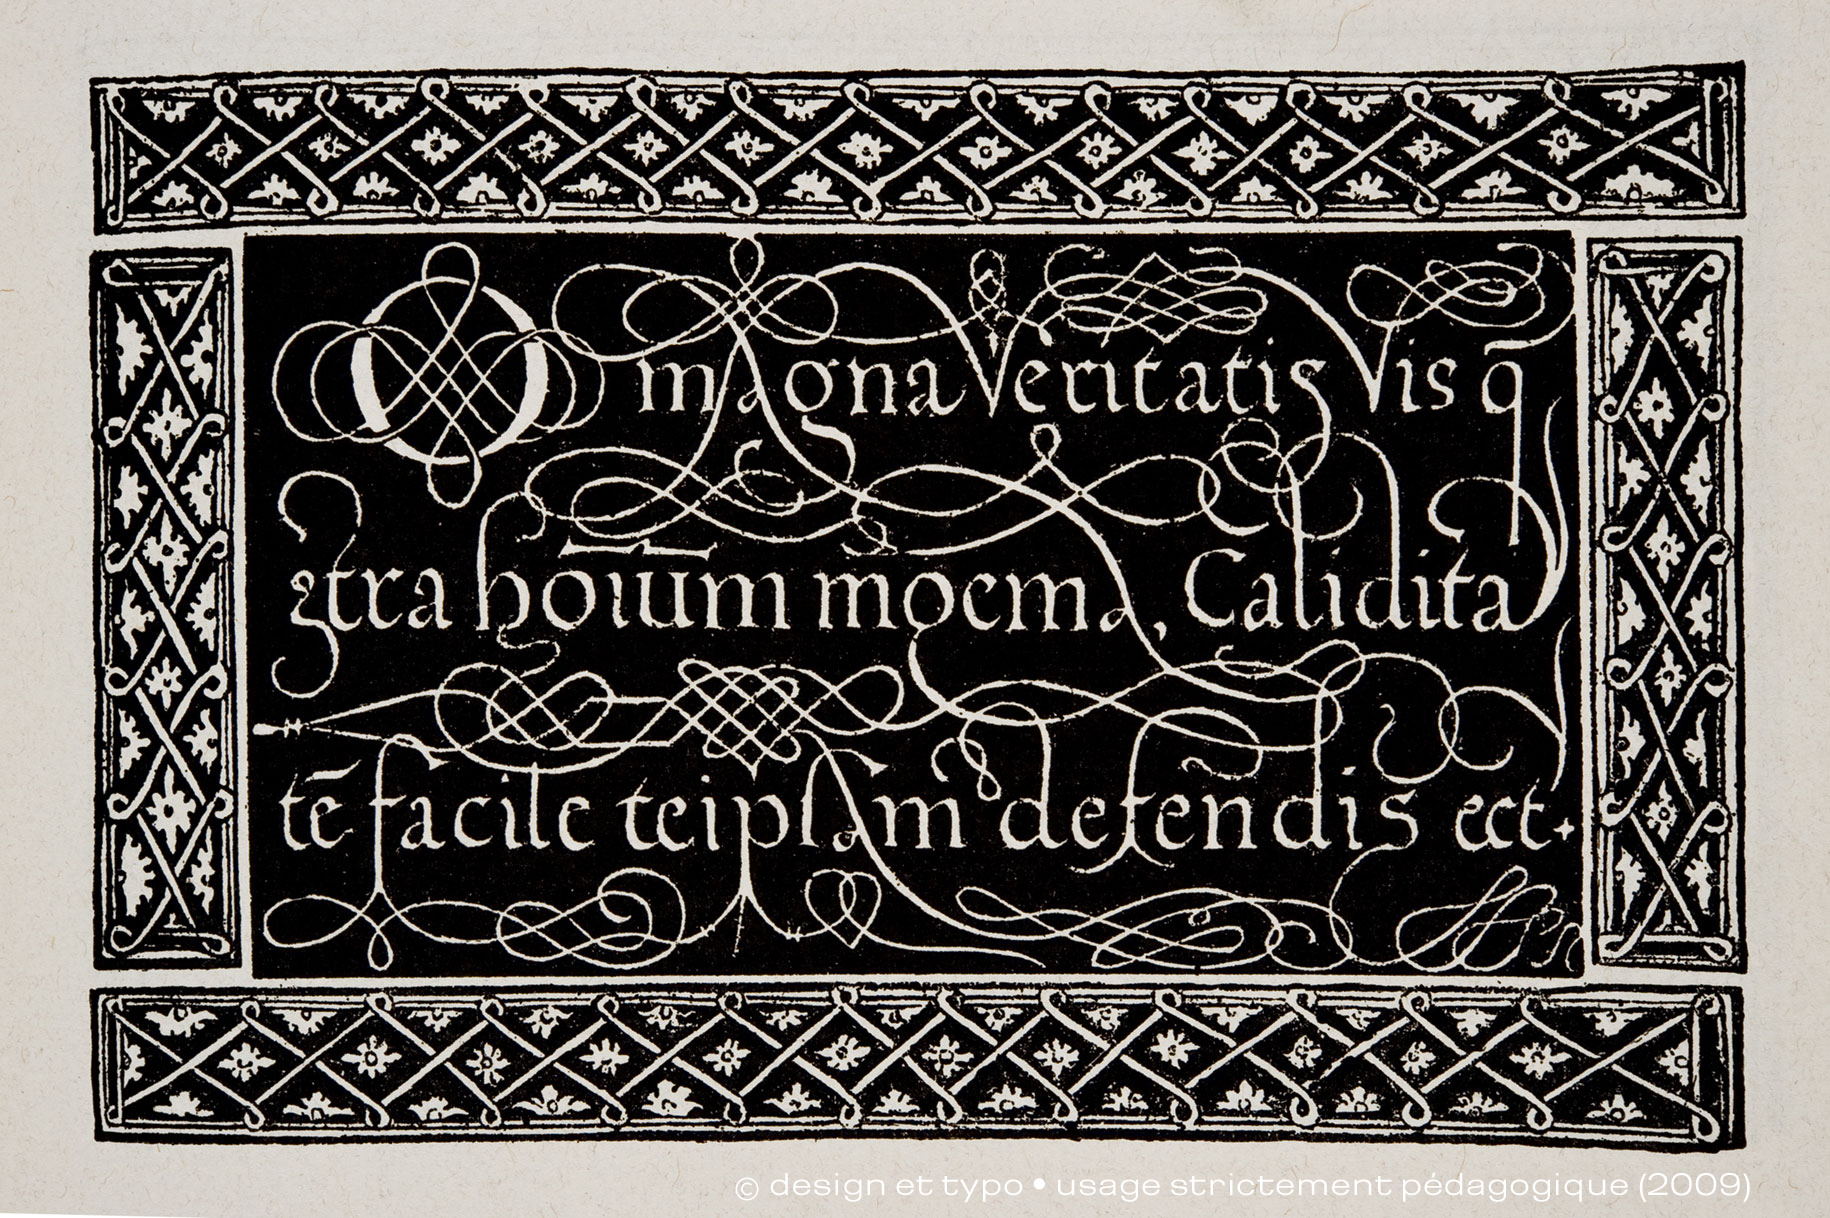 O magna Veritatis Vis q̄
ꝯtra hoīum ingenia, Calidita
tē facile teipſam defendis ect.
© design et typo • usage strictement pédagogique (2009)